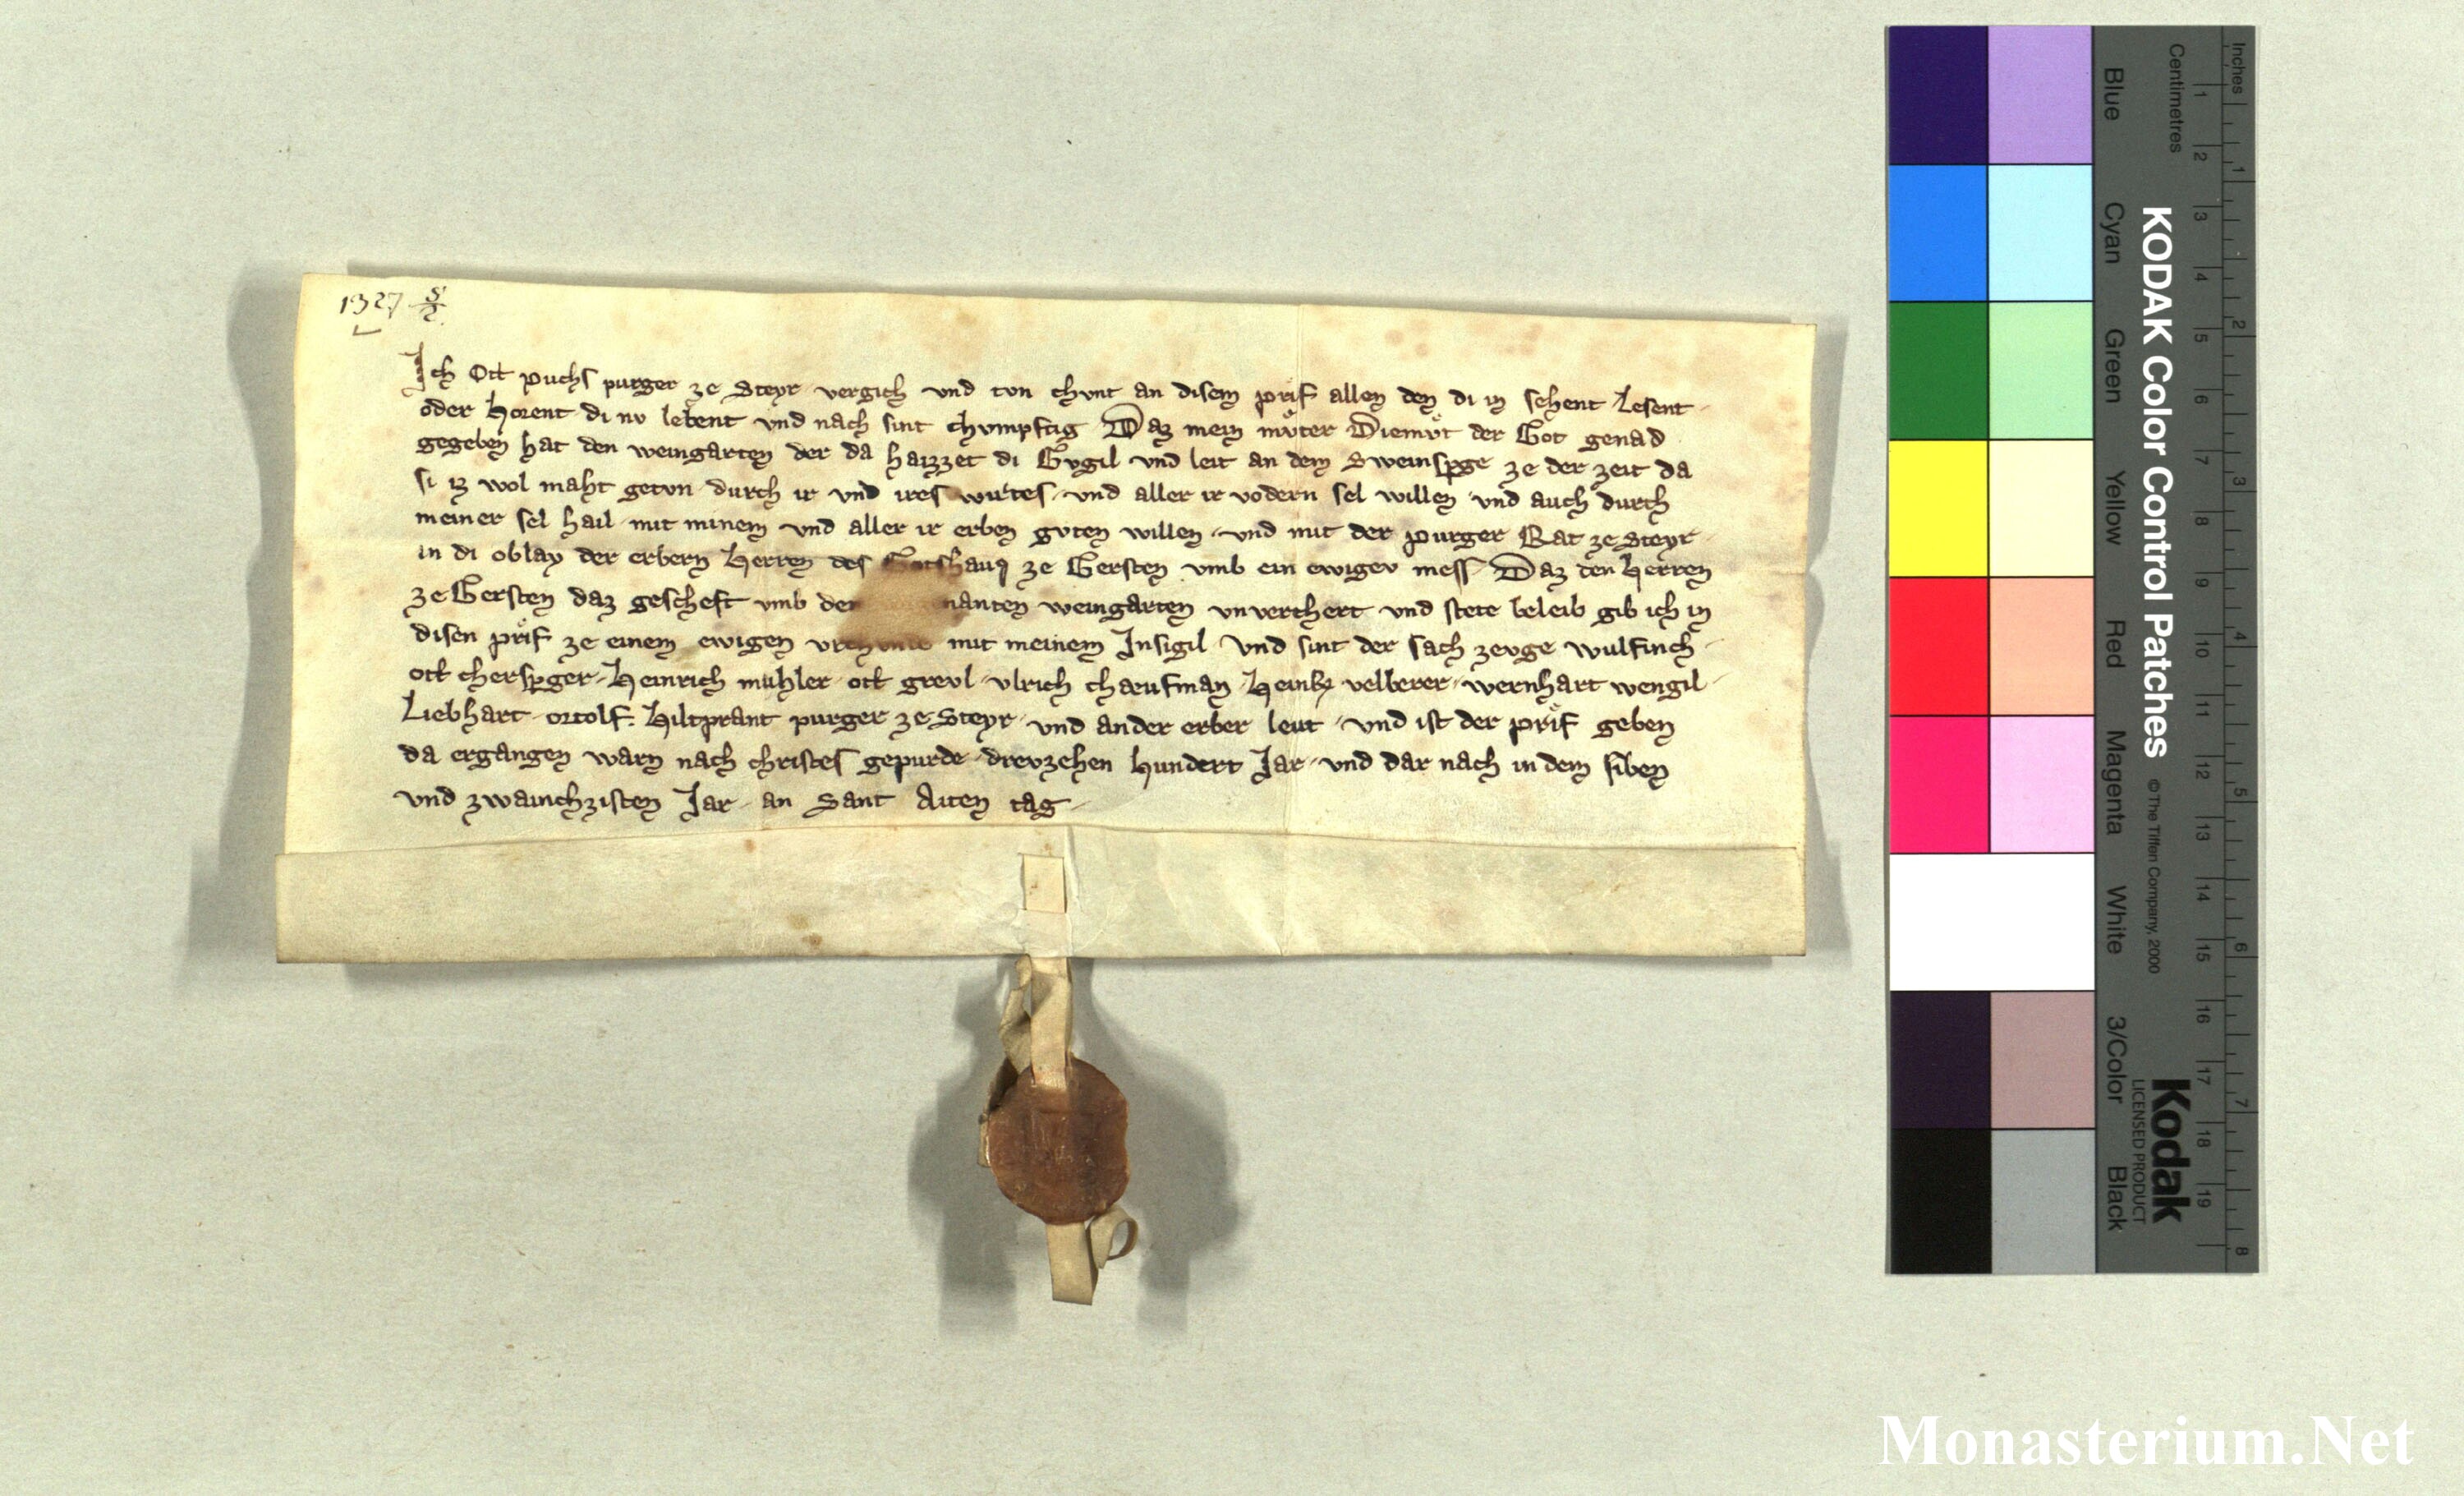 1327 5/2.
Ich Ott puchs purger ze Steyr vergich vnd tvn chvnt an disem prif allen den di in sehent Lesent
oder Horent di nv lebent vnd nach sint chvmpftig Daz mein mvͦter Diemvͦt der Got genad
gegeben hat den weingarten der da haizzet di Gvgil vnd leit an dem Sweinspͤge ze der zeit da
si iz wol maht getvn durch ir vnd ires wirtes vnd aller ir vodern sel willen vnd auch durch
meiner sel hail mit minem vnd aller ir erben gvten willen vnd mit der purger Rat ze Steyr
in di oblay der erbern Herren des Gotshaus ze Gersten vmb ein ewigev mess Daz den Herren
ze Gersten daz gescheft vmb den nanten weingarten vnverchert vnd stete beleib gib ich in
disen prif ze einem ewigen vrchvnd mit meinem Insigil Vnd sint der sach zevge wulfinch
ott cherspͤger Heinrich mühler ott grevl vlrich chaufman Heinr velberer wernhart wengil
Liebhart ortolf Hiltprant purger ze Steyr vnd ander erber leut vnd ist der prif geben
da ergangen warn nach christes gepurde drevzehen Hundert Jar vnd dar nach in dem siben
vnd zwainchzisten Jar an Sant Aiten tag
Inches
Centimetres
1 2 3 4 5 6 7 8
1 2 3 4 5 6 7 8 9 10 11 12 13 14 15 16 17 18 19
KODAK Color Control Patches
©The Tiffen Company, 2000
Kodak
LICENSED PRODUCT
Blue
Cyan
Green
Yellow
Red
Magenta
White
3/Color
Black
Monasterium.Net